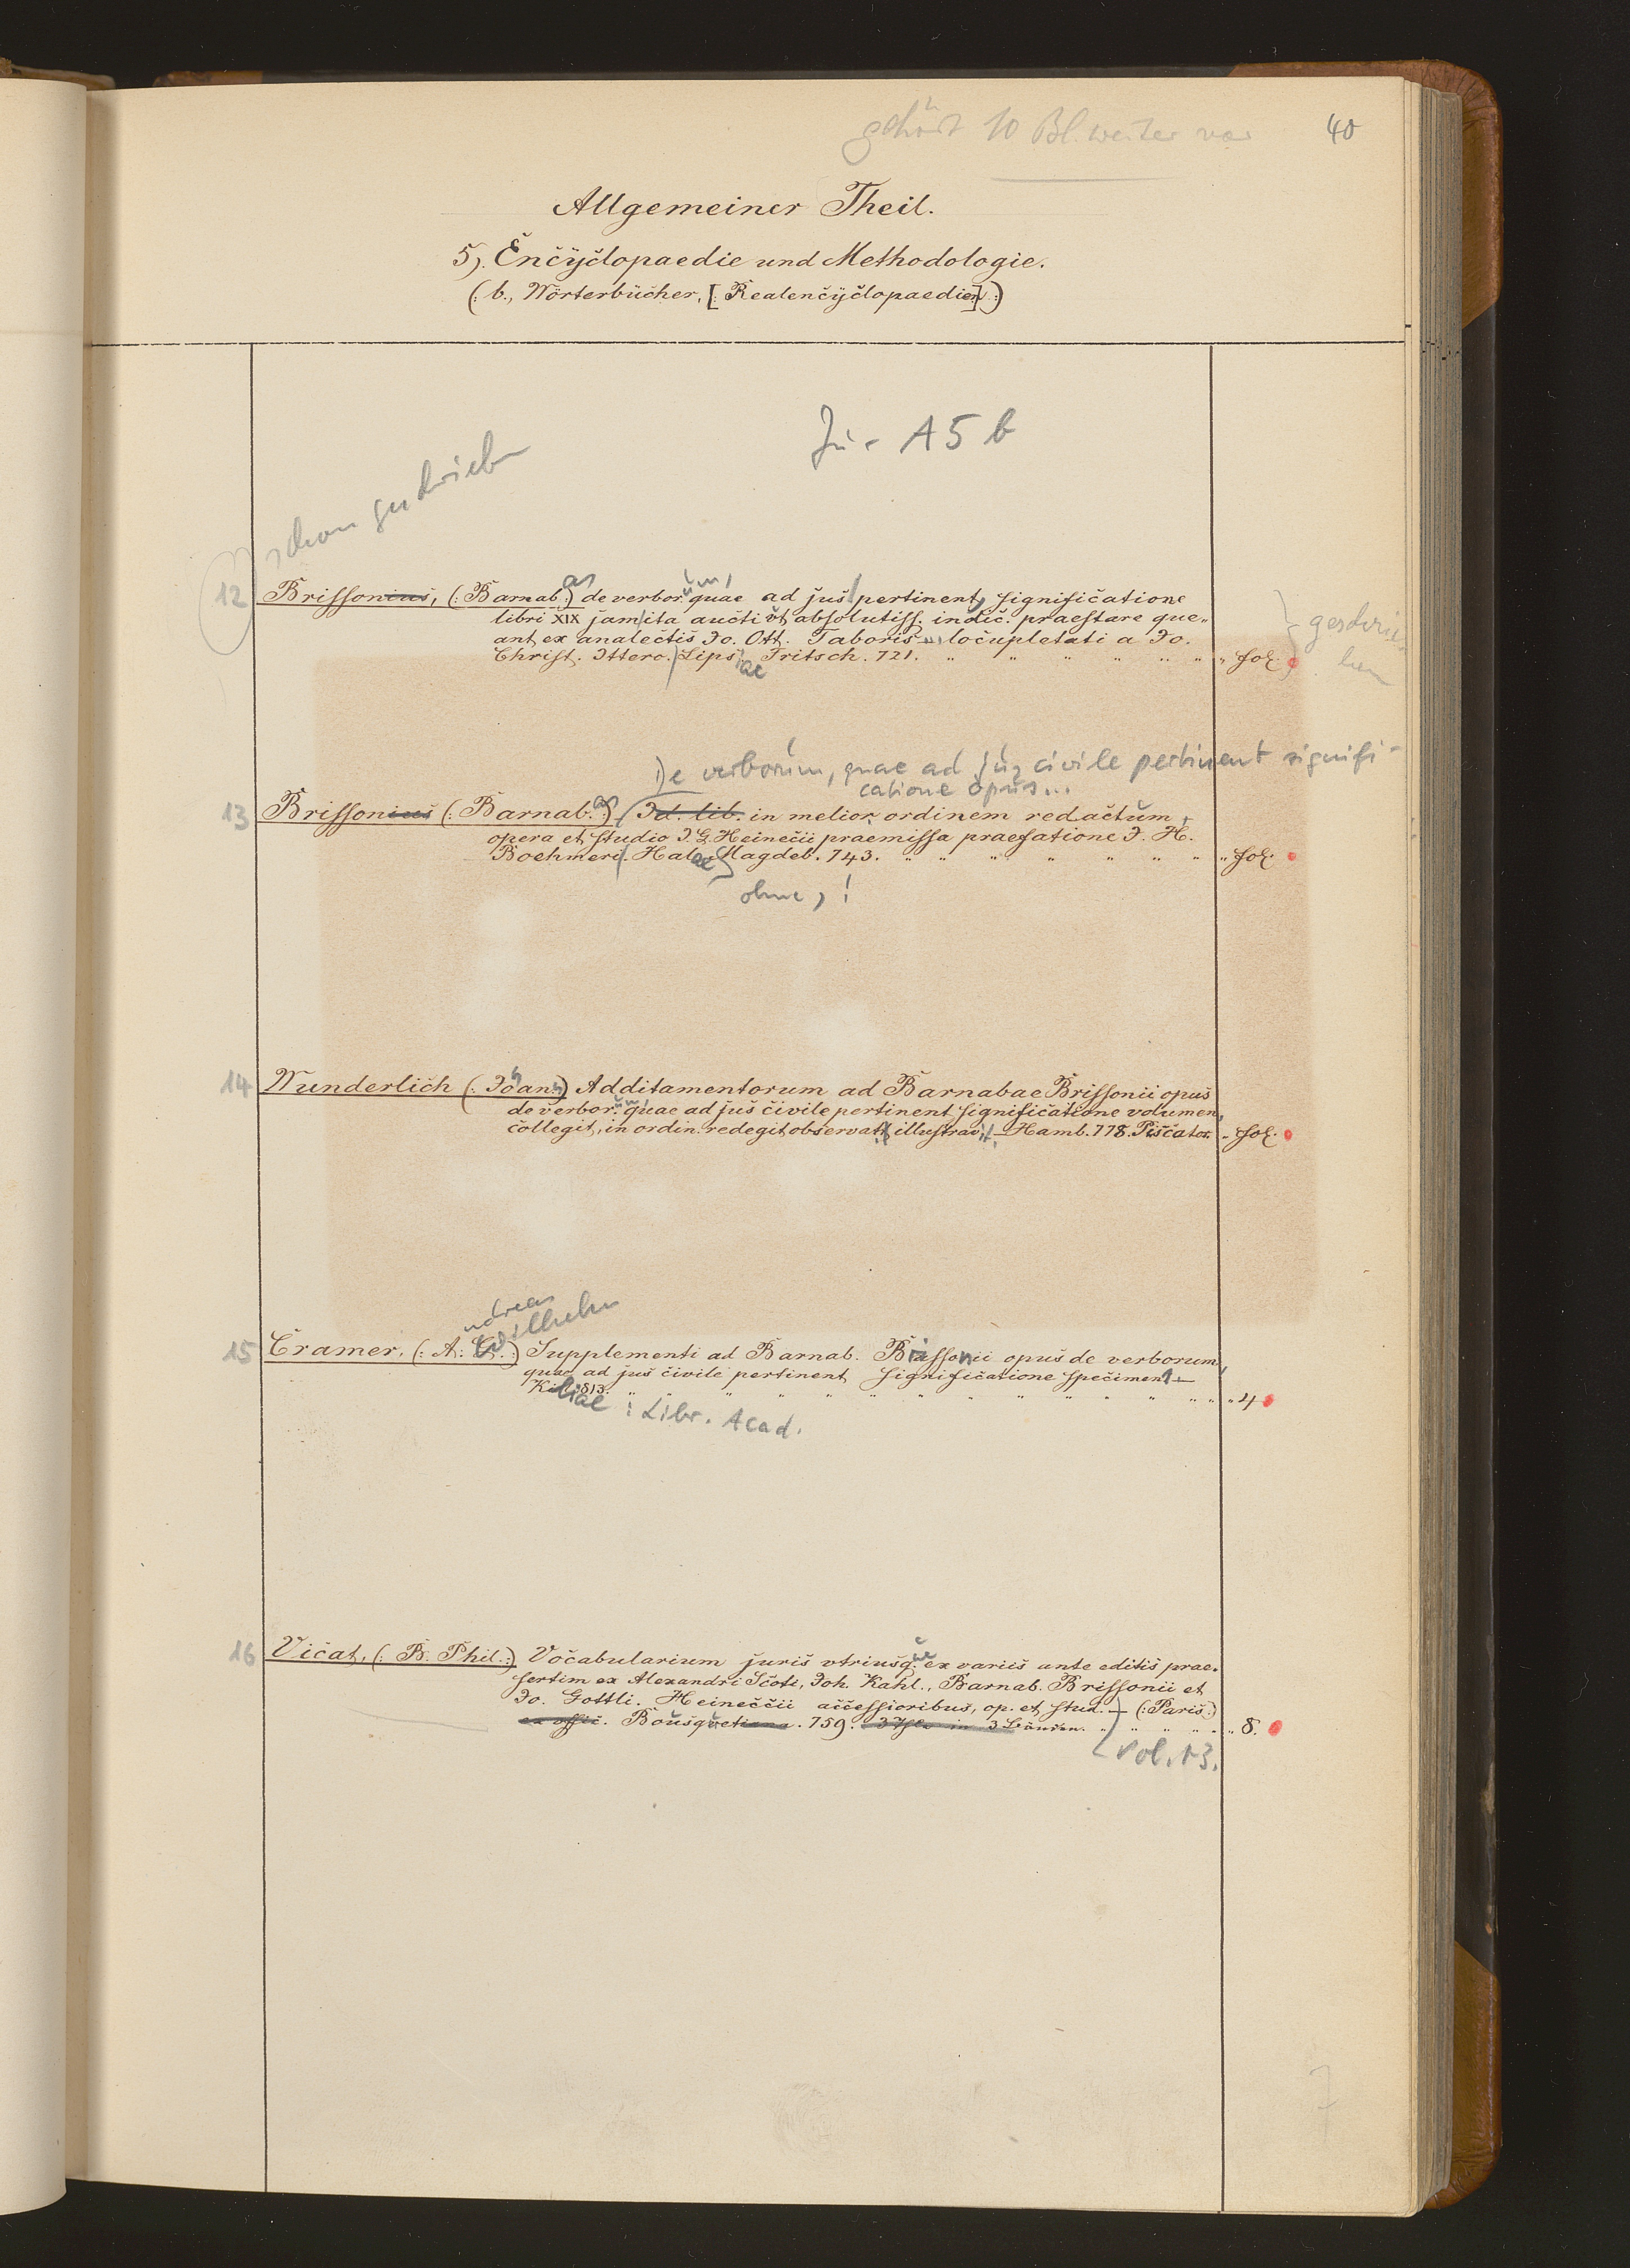 gehört 10 Bl. weiter vor
40
Allgemeiner Theil.
5). Encyclopaedie und Methodologie.
(: b., Wörterbücher, [: Realencyclopaedien :] :)
Jur A 5 b
schon geschrieben
12 Brissonius, (: Barnab.as :) de verbor.um, quae ad jus pertinent, significatione
libri XIX jam ita aucti ut absolutiss. indic. praestare que„
ant ex analectis Jo. Ott. Taboris ... locupletati a Jo.
Christ. Ittero. Lipsiae Fritsch. 721. „ fol.
geschrie-
ben
De verborum, quae ad jus civile pertinent signifi-
catione opus...
13 Brissonius (: Barnab.as :) Id. lib. in melior. ordinem redactum,
opera et studio I. G. Heinecii praemissa praefatione I. H.
Boehmeri. Halae Magdeb. 743. „ fol.
ohne , !
14 Wunderlich (: Joann :) Additamentorum ad Barnabae Brissonii opus
de verbor.um, quae ad jus civile pertinent significatione volumen,
collegit, in ordin. redegit, observatt. illustravit. — Hamb. 778. Piscator. „ fol.
ndreas
Wilhelm
15 Cramer, (: A. W. :) Supplementi ad Barnab. Brissonii opus de verborum,
quae ad jus civile pertinent significatione specimen 1 —
Kiliae 813. „ 4
: Libr. Acad.
16 Vicat, (: B. Phil. :) Vocabularium juris utriusq.ue ex variis ante editis prae„
sertim ex Alexandri Scoti, Joh. Kahl., Barnab. Brissonii et
Jo. Gottli. Heineccii accessioribus, op. et stud. — (: Paris :)
ex offic. Bousquetiana. 759. 3 Thle in 3 Bänden. „ 8.
Vol. 1-3.